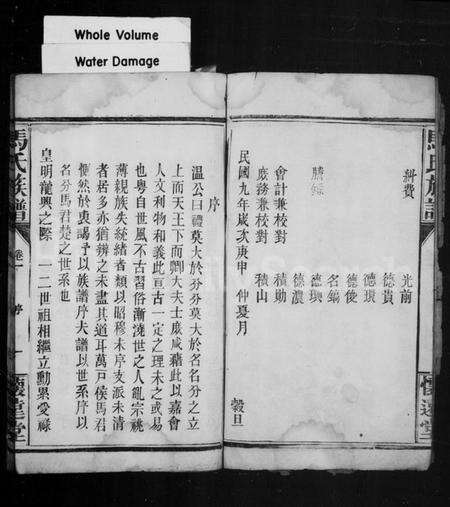 Whole Volume
Water Damage
馬氏族譜
科費
光前
德貴
德璜
德俊
名鎬
謄錄
德瓊
德濃
會計兼校對
積勛
庶務兼校對
積山
民國九年歲次庚申
仲夏月
穀旦
懷遠堂
序
溫公曰禮莫大於分分莫大於名名分之立
上而天王下而卿大夫士庶咸藉此以嘉會
人文利物和義此亘古一定之理未之或易
也粵自世風不古習俗漸澆世之人亂宗祧
薄親族失統緒者類以昭穆未序支派未清
者居多亦猶辨之未盡其道耳萬戸侯馬君
惻然於衷謁予以族譜序夫譜以世系序以
名分馬君楚之世系也
皇明龍興之際
一二世祖相繼立勳累受祿
馬氏族譜
卷一
序
一
懷遠堂